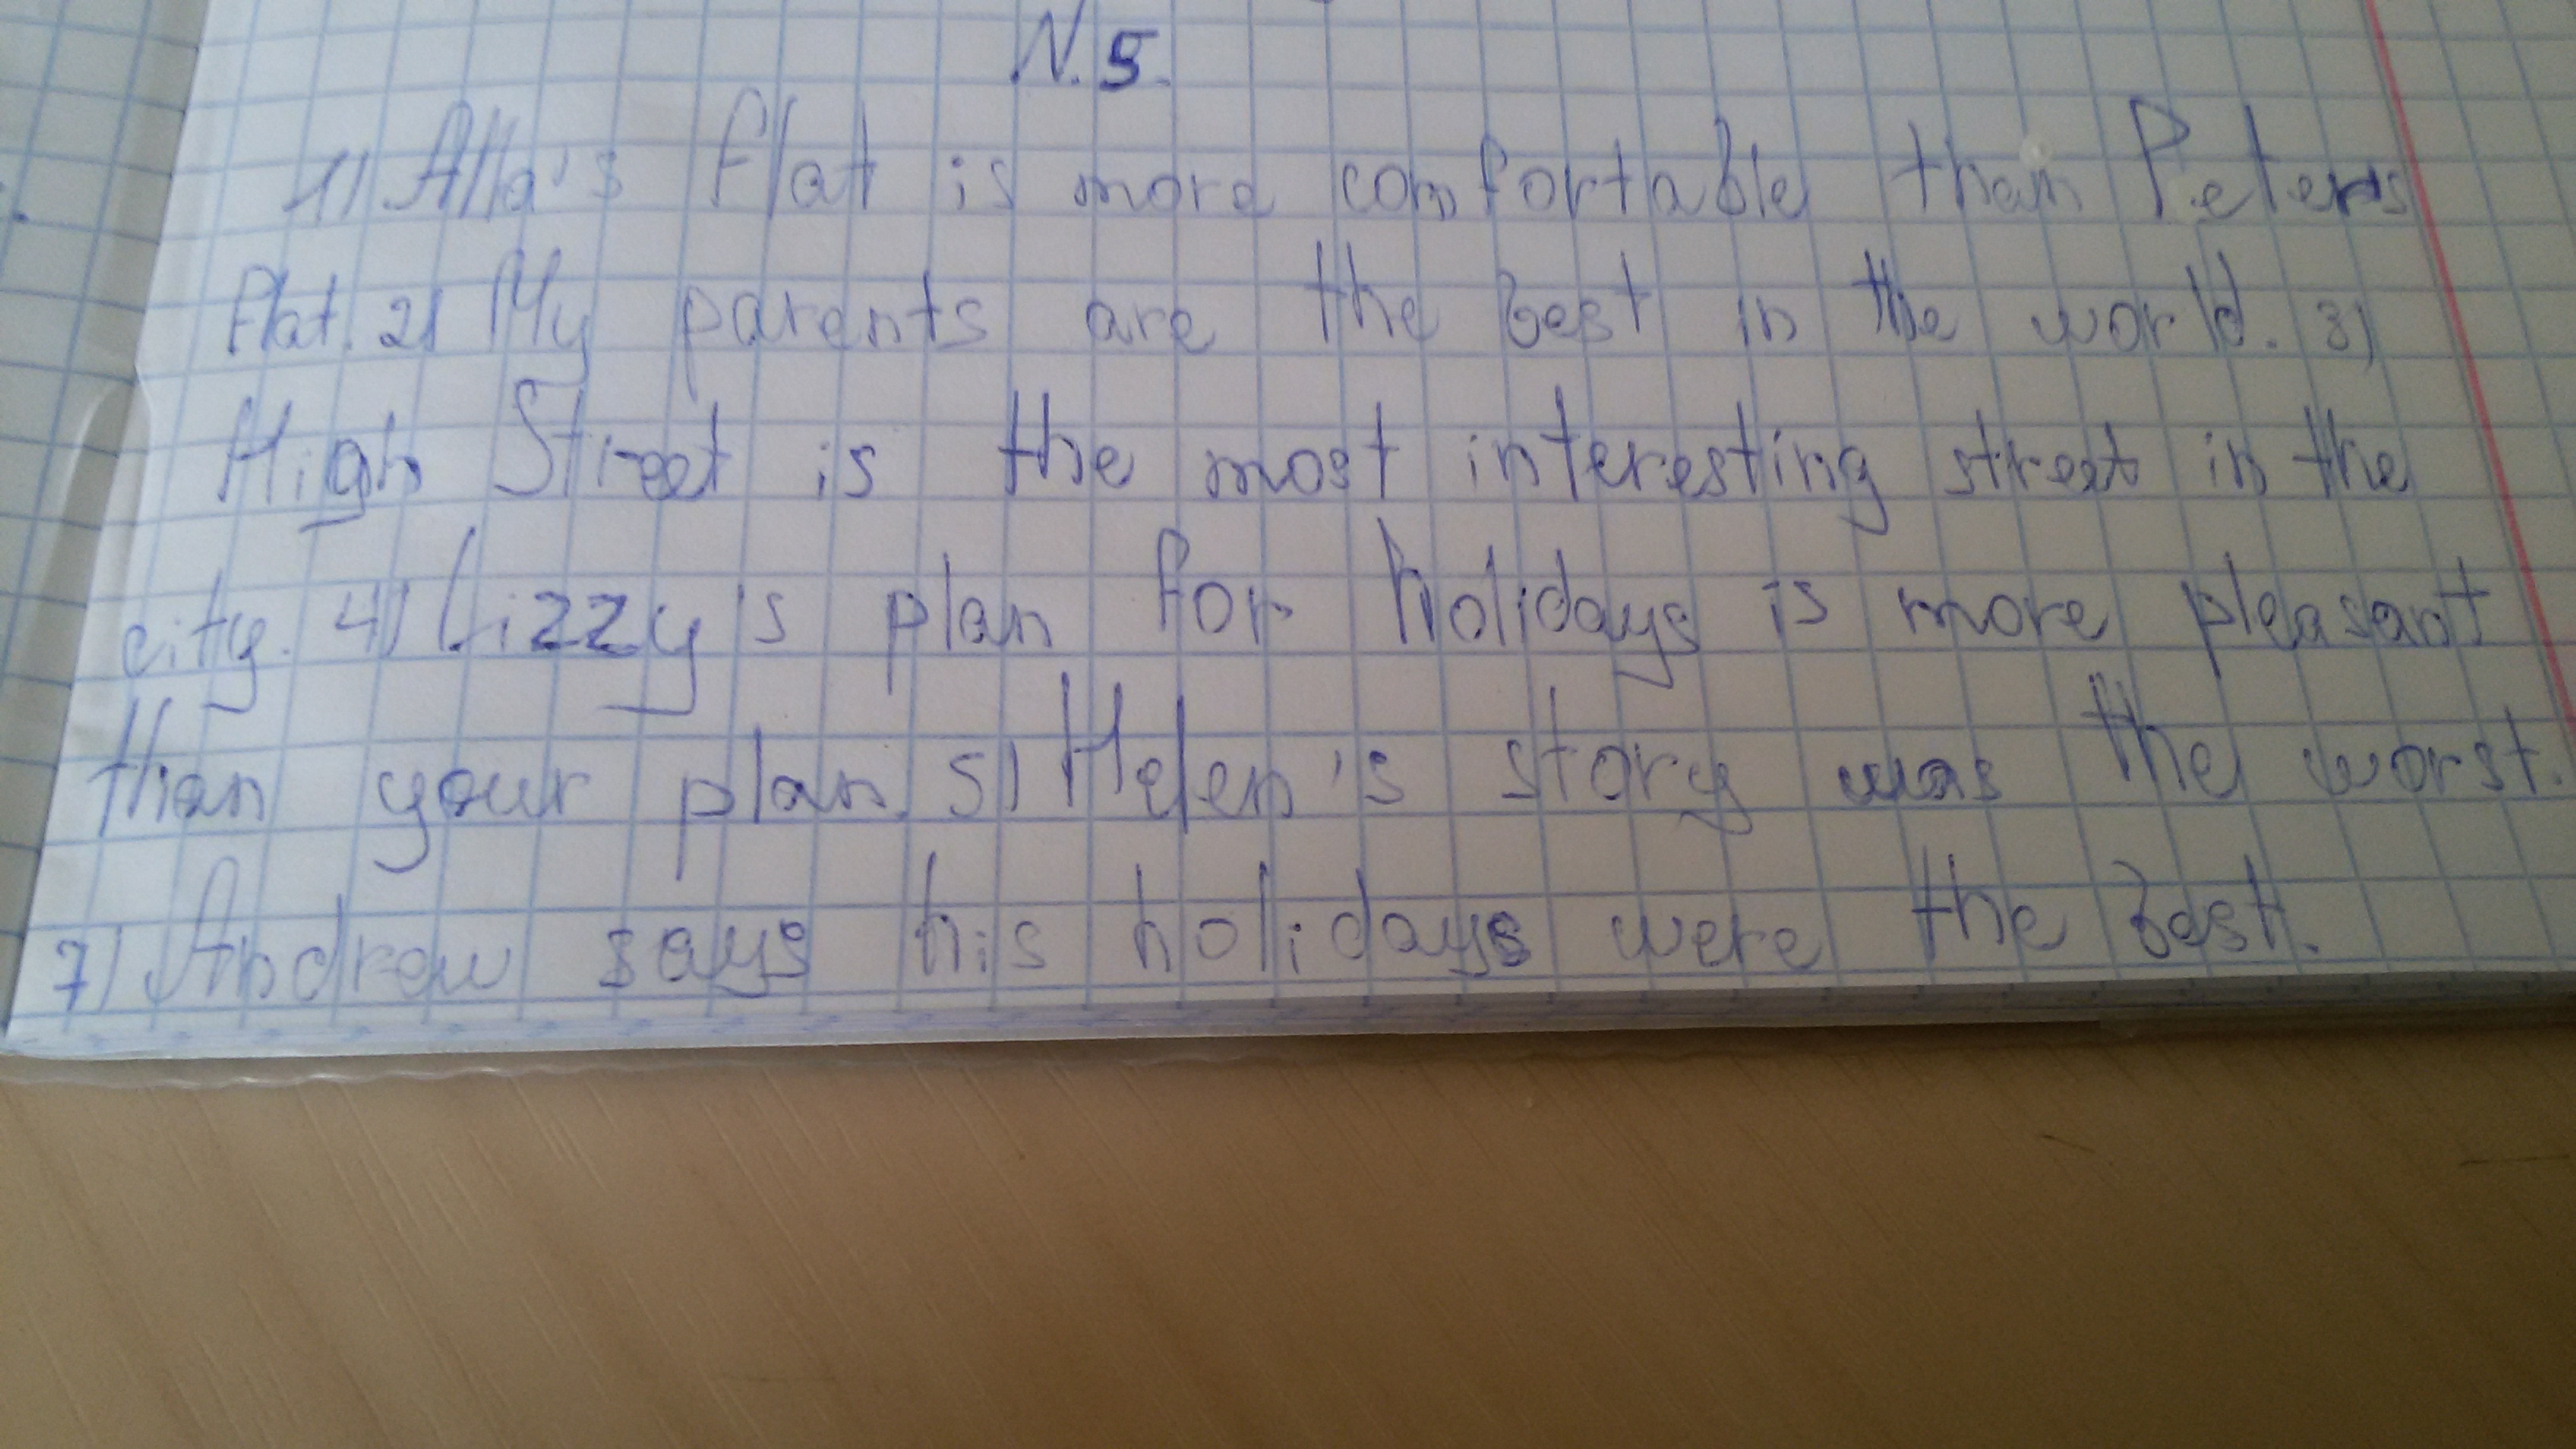 N. 5.
1) Alla's flat is more comfortable than Peters
flat. 2) My parents are the best in the world. 3)
High Street is the most interesting street in the
city. 4) Lizzy's plan for holidays is more pleasant
than your plan. 5) Helen's story was the worst.
7) Andrew says his holidays were the best.